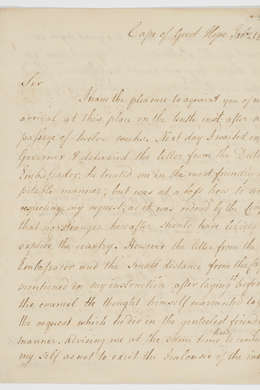 Cape of Good Hope
Sir
I have the pleasure to acquaint you of
arrival at this place on the tenth inst after
passage of twelve weeks. Next day I waited
Governor & delivered the letter from the Dutch
Embassador, he treated me in the most friendly
pitable manner, but was at a loss how to
respecting my request, as it was
that no stranger hereafter should have
explore the country. However the letter from the
Embassador and the small distance from the
mentioned in my instruction after laying before
the council He thought himself warranted to
the request which he did in the genteelest friend
manner, advising me at the same time to
my self as not to excite the Jealousie of the